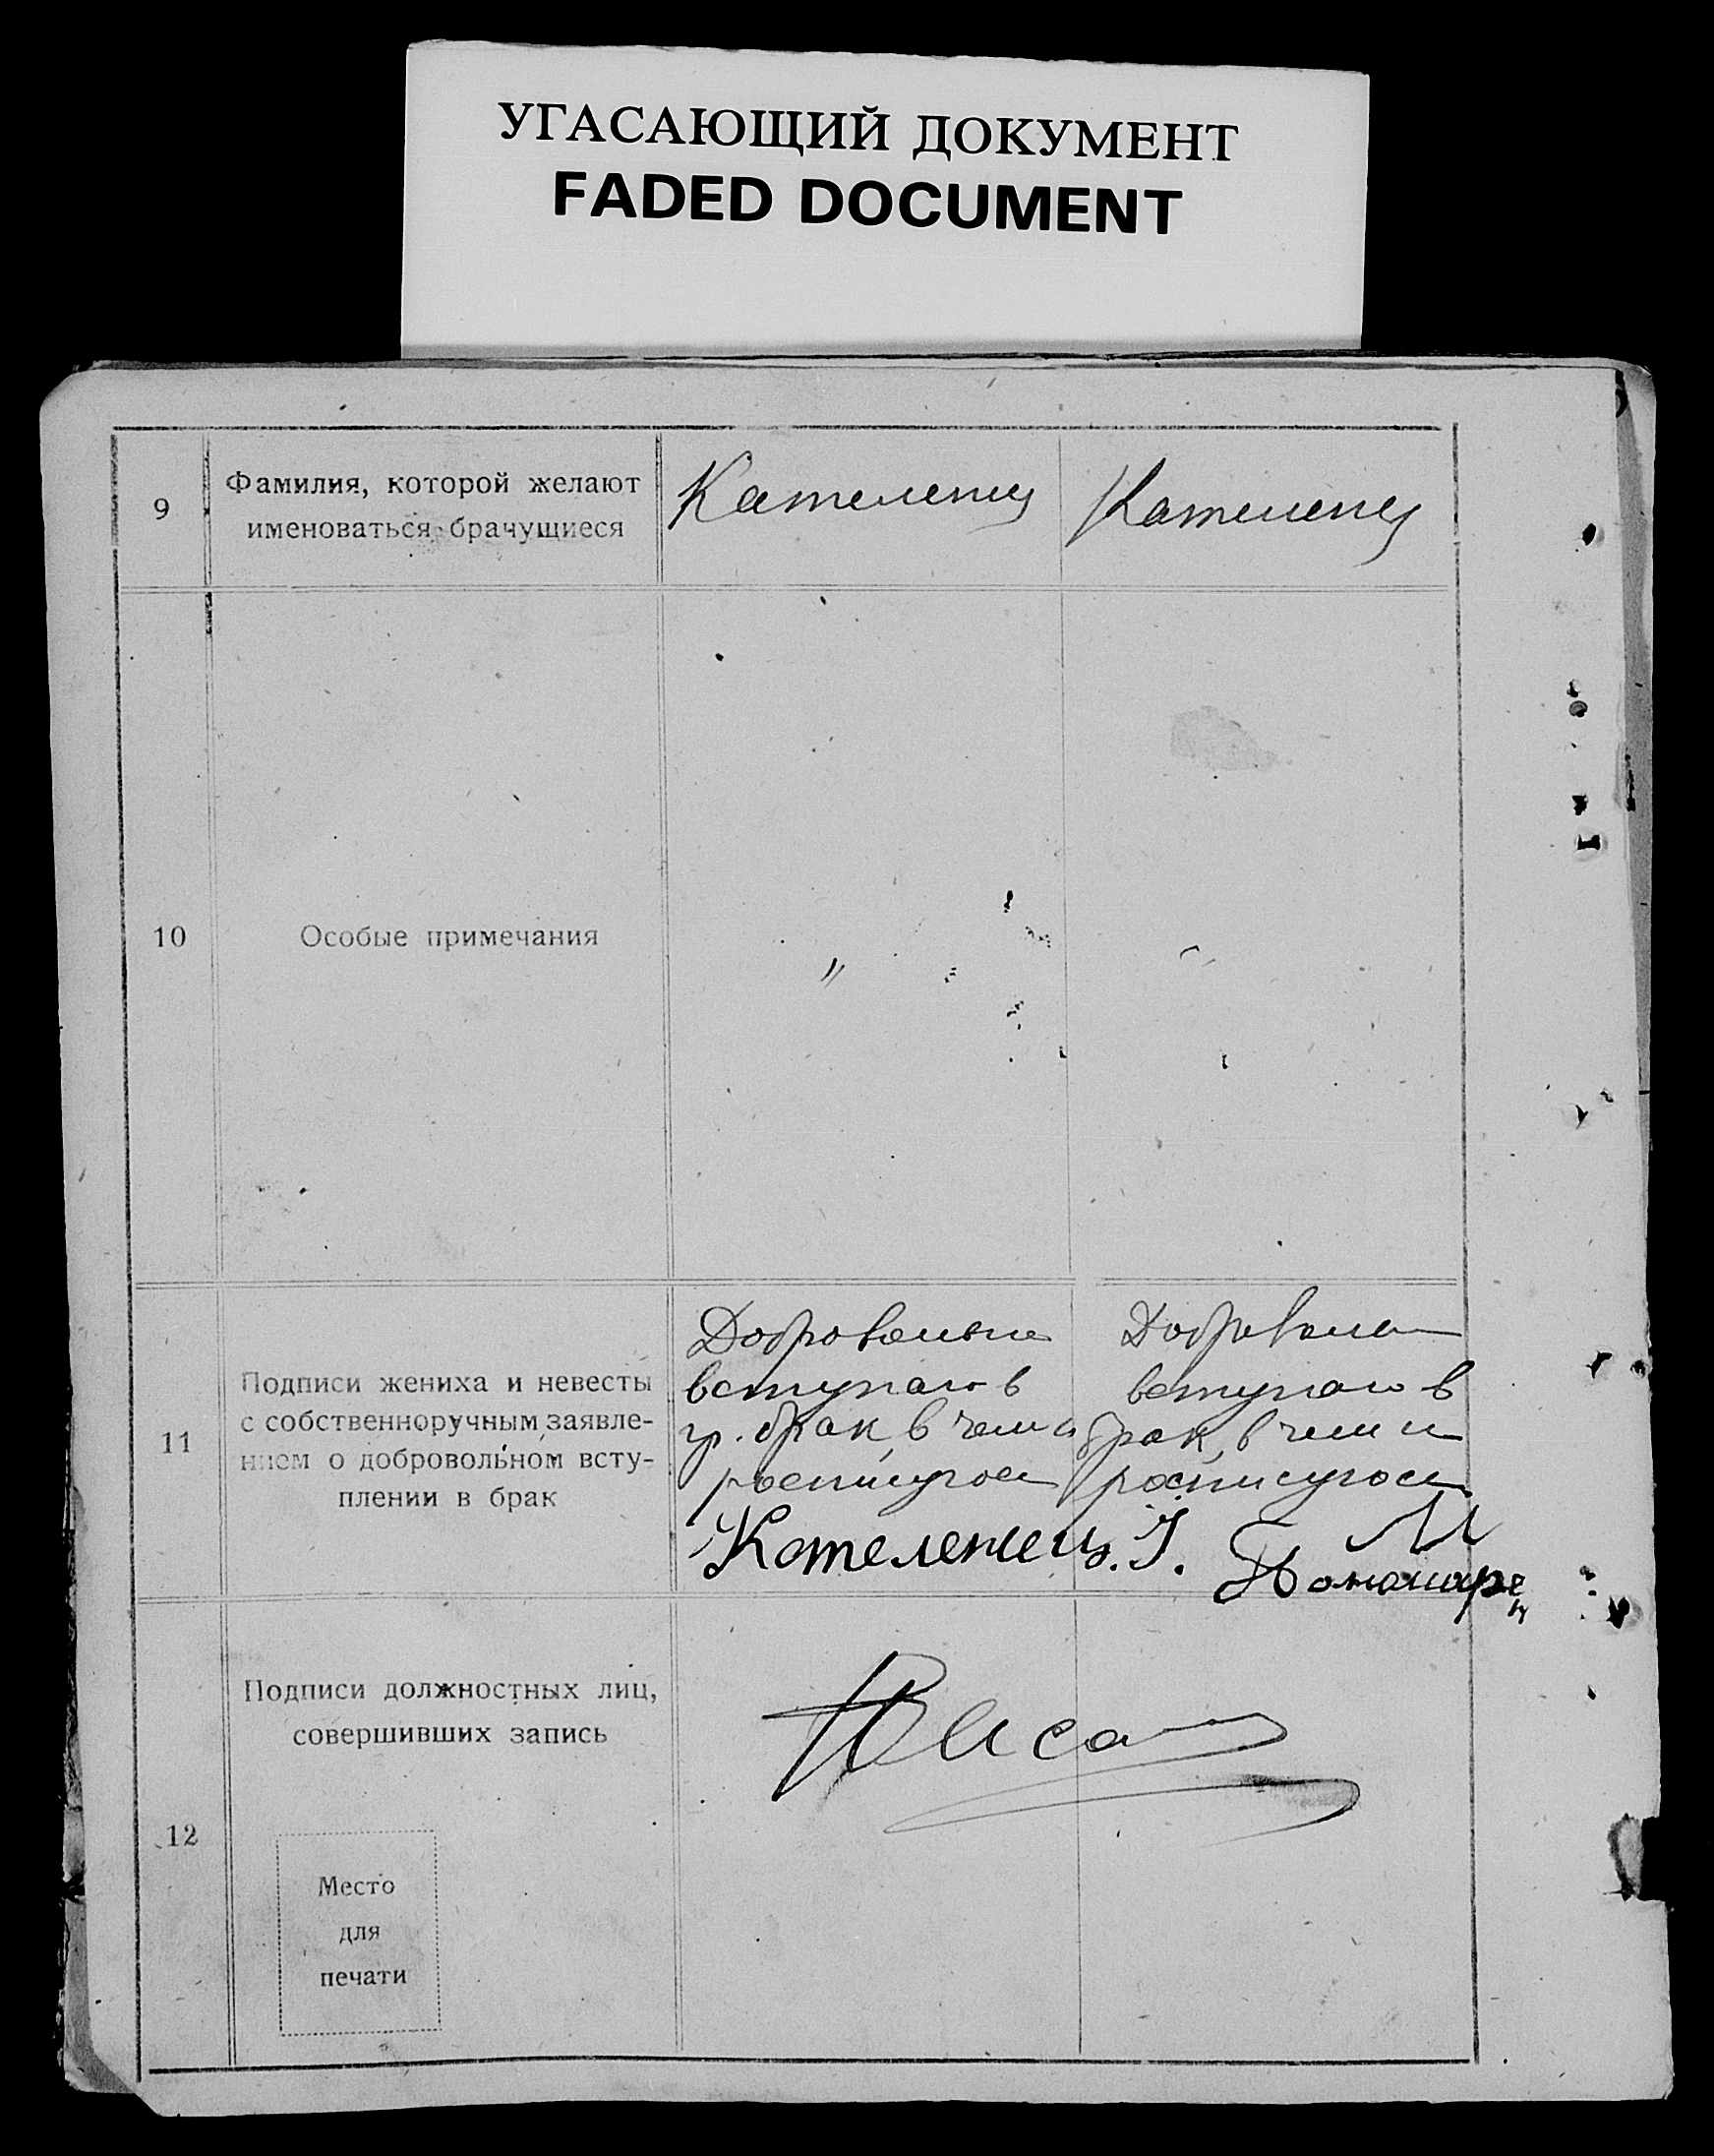 УГАСАЮЩИЙ ДОКУМЕНТ
FADED DOCUMENT
9
Фамилия, которой желают
именоваться брачущиеся
Кателенец
Кателенец
10
Особые примечания
"
11
Подписи жениха и невесты
с собственноручным заявле-
нием о добровольном всту-
плении в брак
Добровольно
вступаю в
гр. брак, в чем и
росписуюсь
Кателенец. І.
Добровольно
вступаю в
брак, в чем и
росписуюсь
М
12
Подписи должностных лиц,
совершивших запись
Место
для
печати